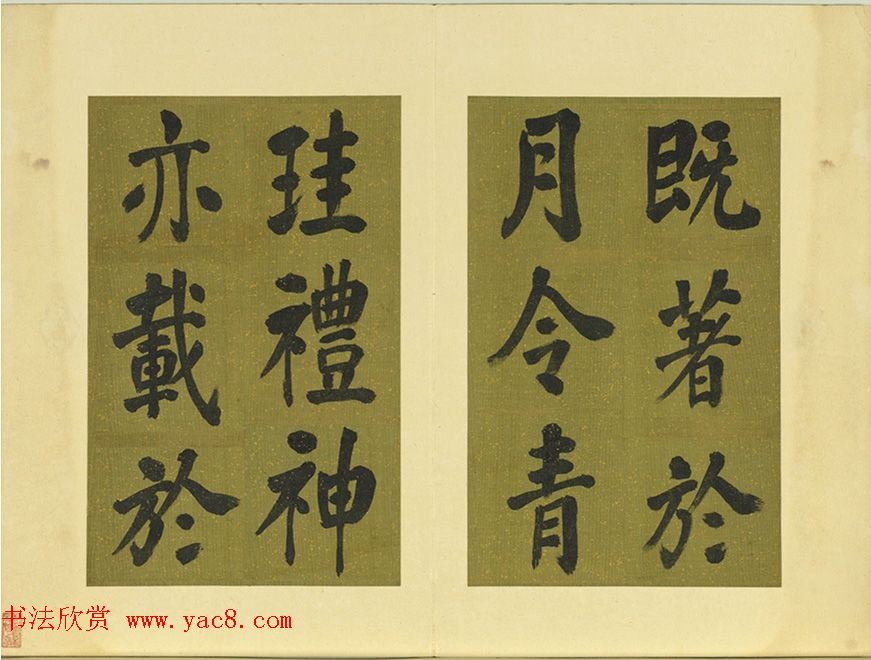 既著於
月令青
珪禮神
亦載於
书法欣赏 www.yac8.com